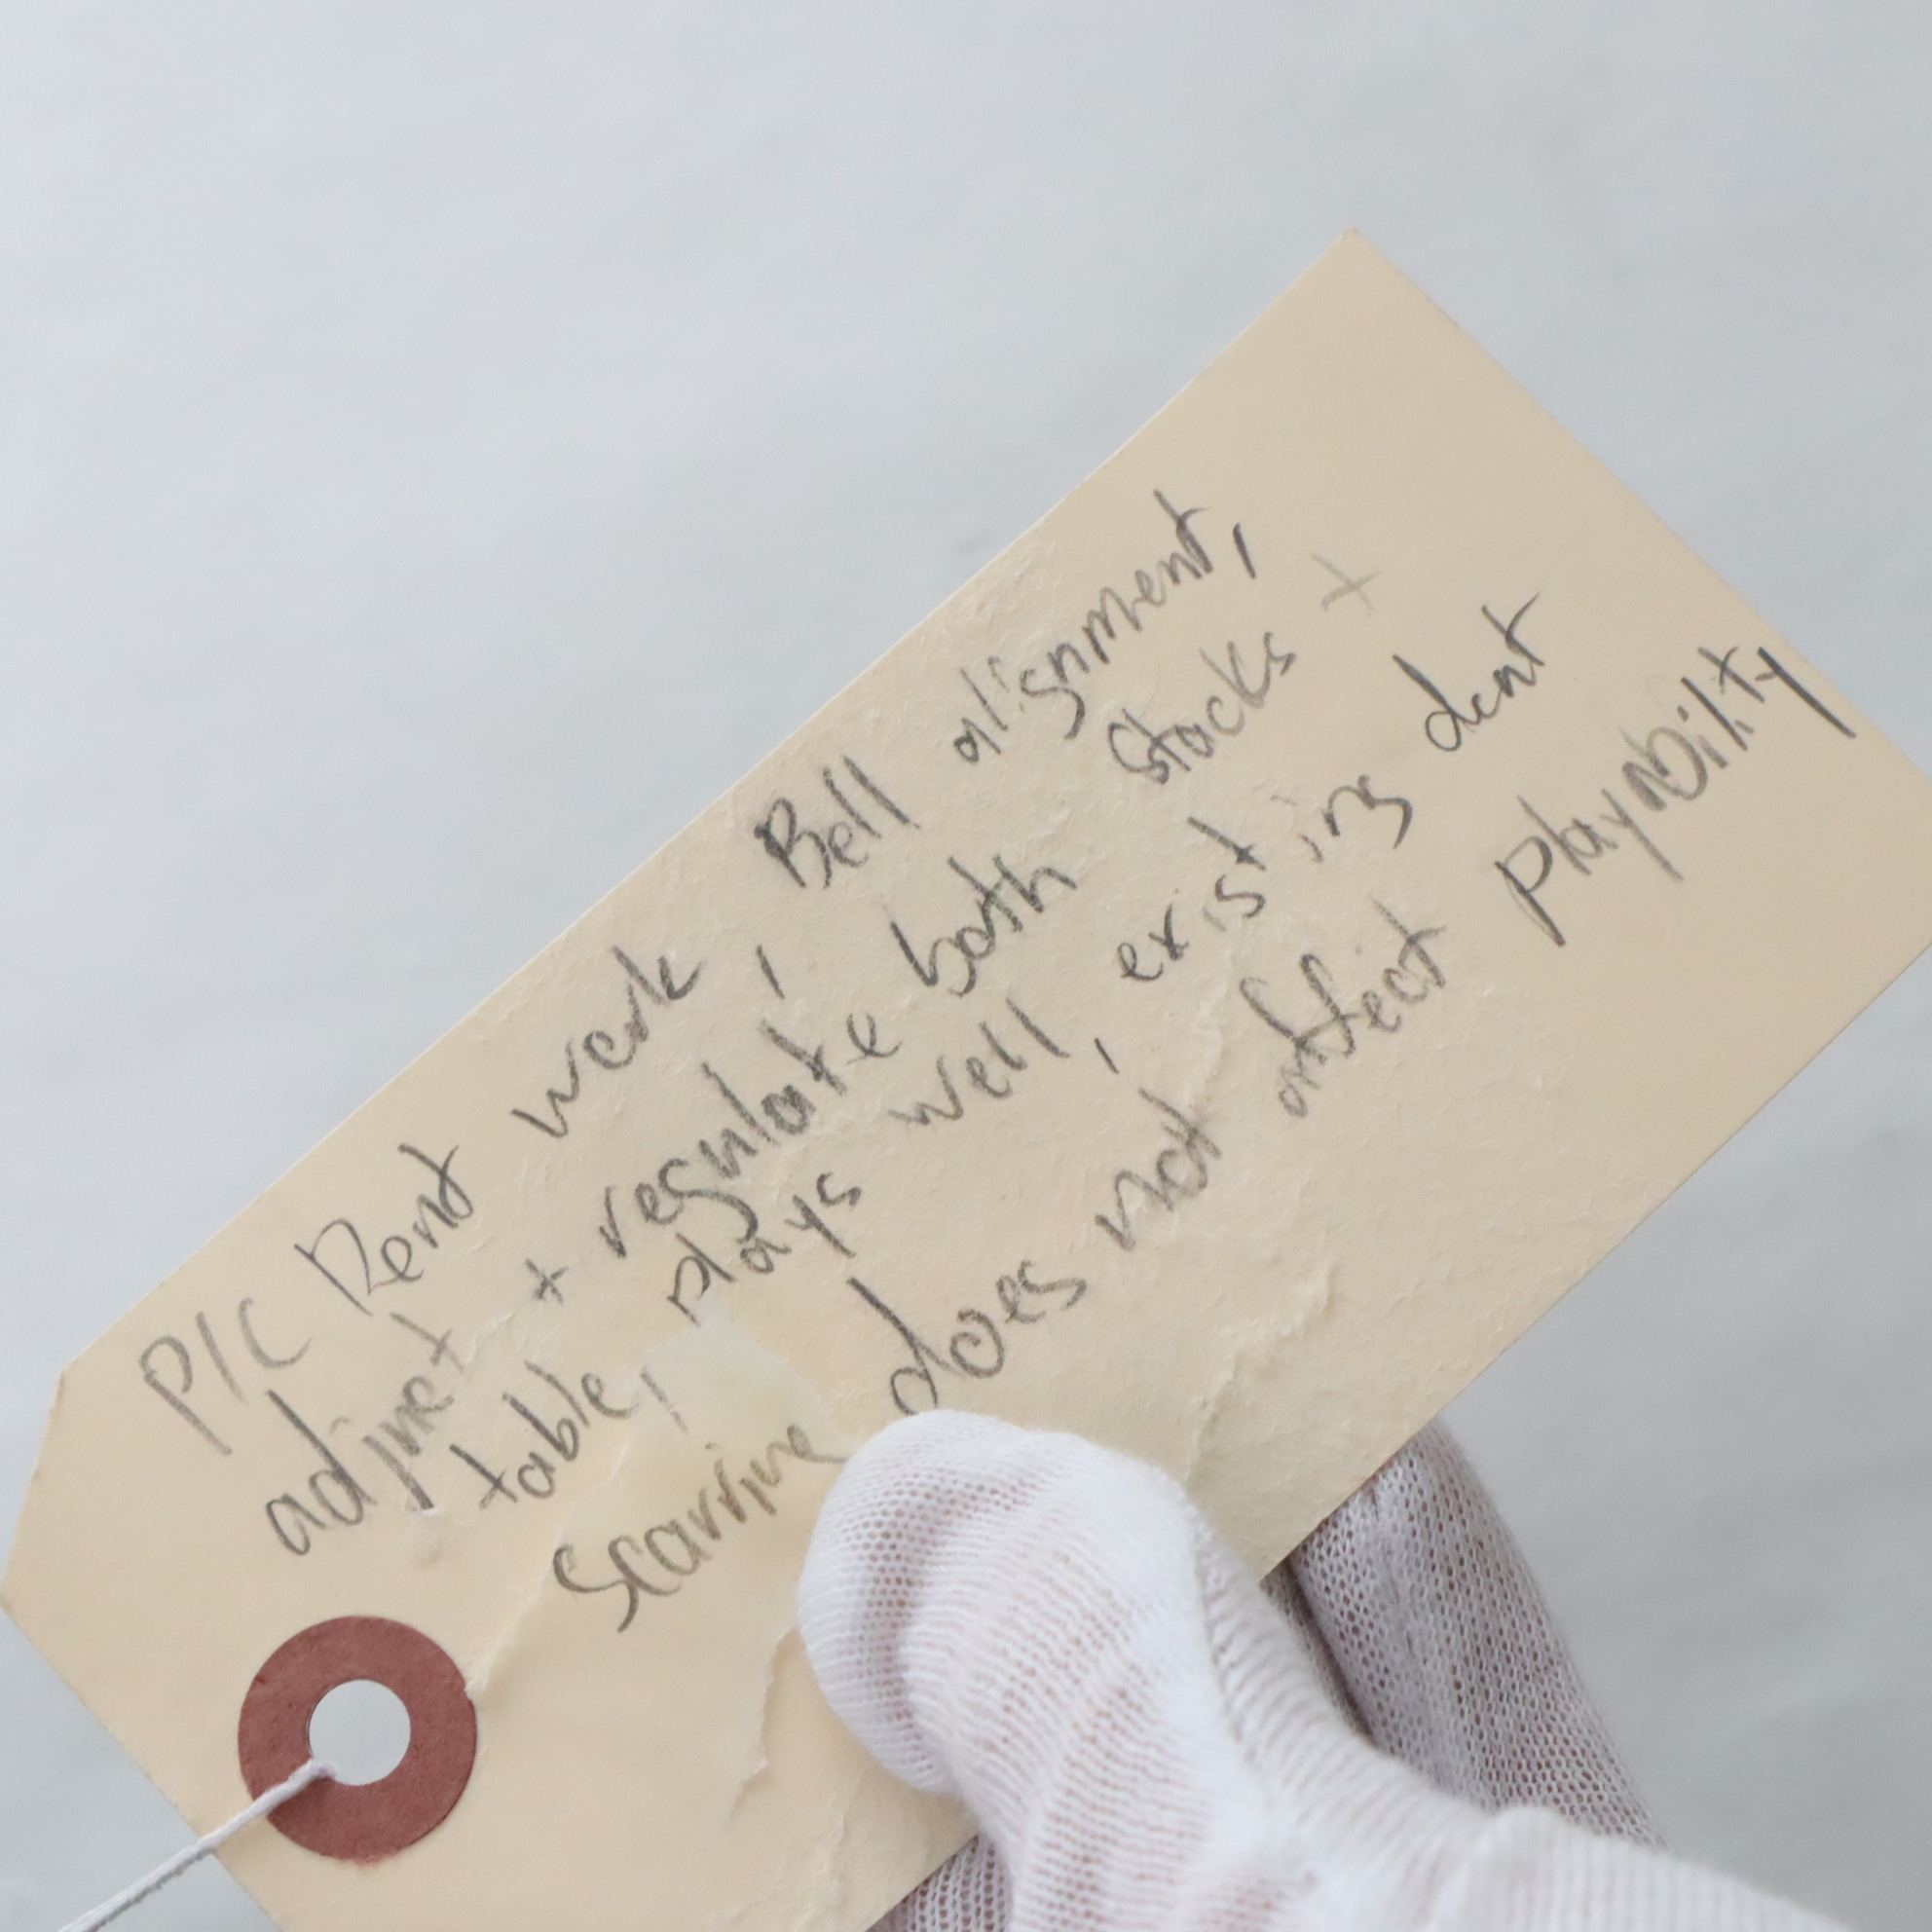 P/C Dent work, Bell alignment,
adjust + regulate both stacks +
table, plays well, existing dent
scarring does not affect playability